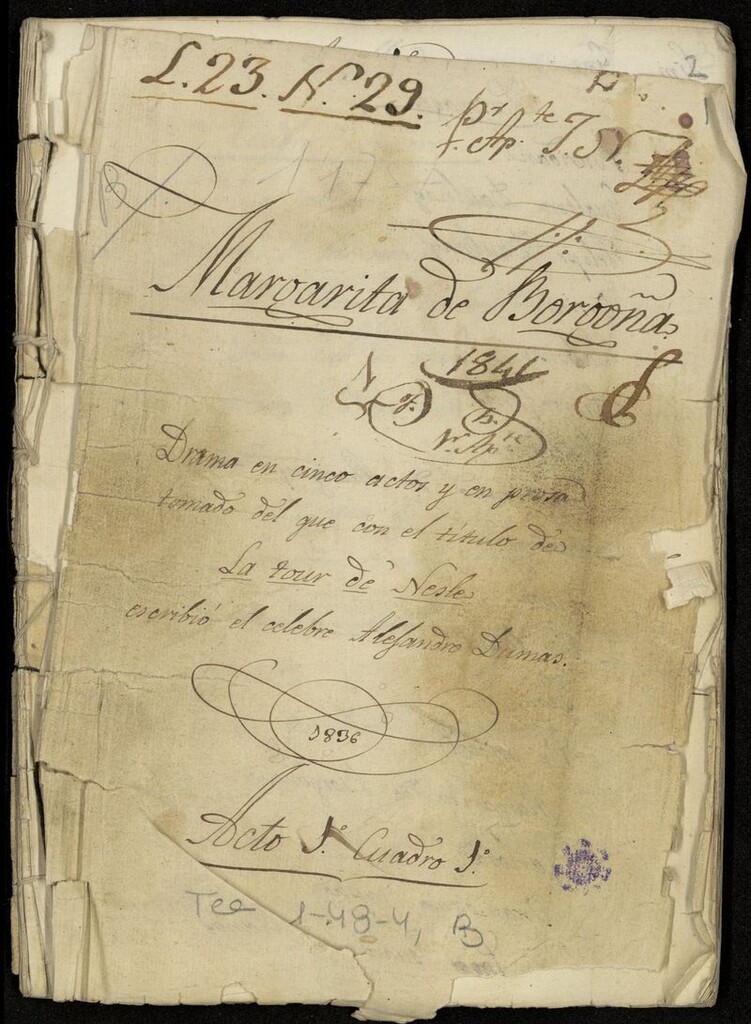 2
L.23. N.º 29.
p.r Ap.te
117
Margarita de Borgoña
1841
1.r Ap.te
Drama en cinco actos y en prosa
tomado del que con el título de
La tour de Nesle
escribió el celebre Alejandro Dumas.
1836
Acto 1.º Cuadro 1.º
Tea 1-48-4, B